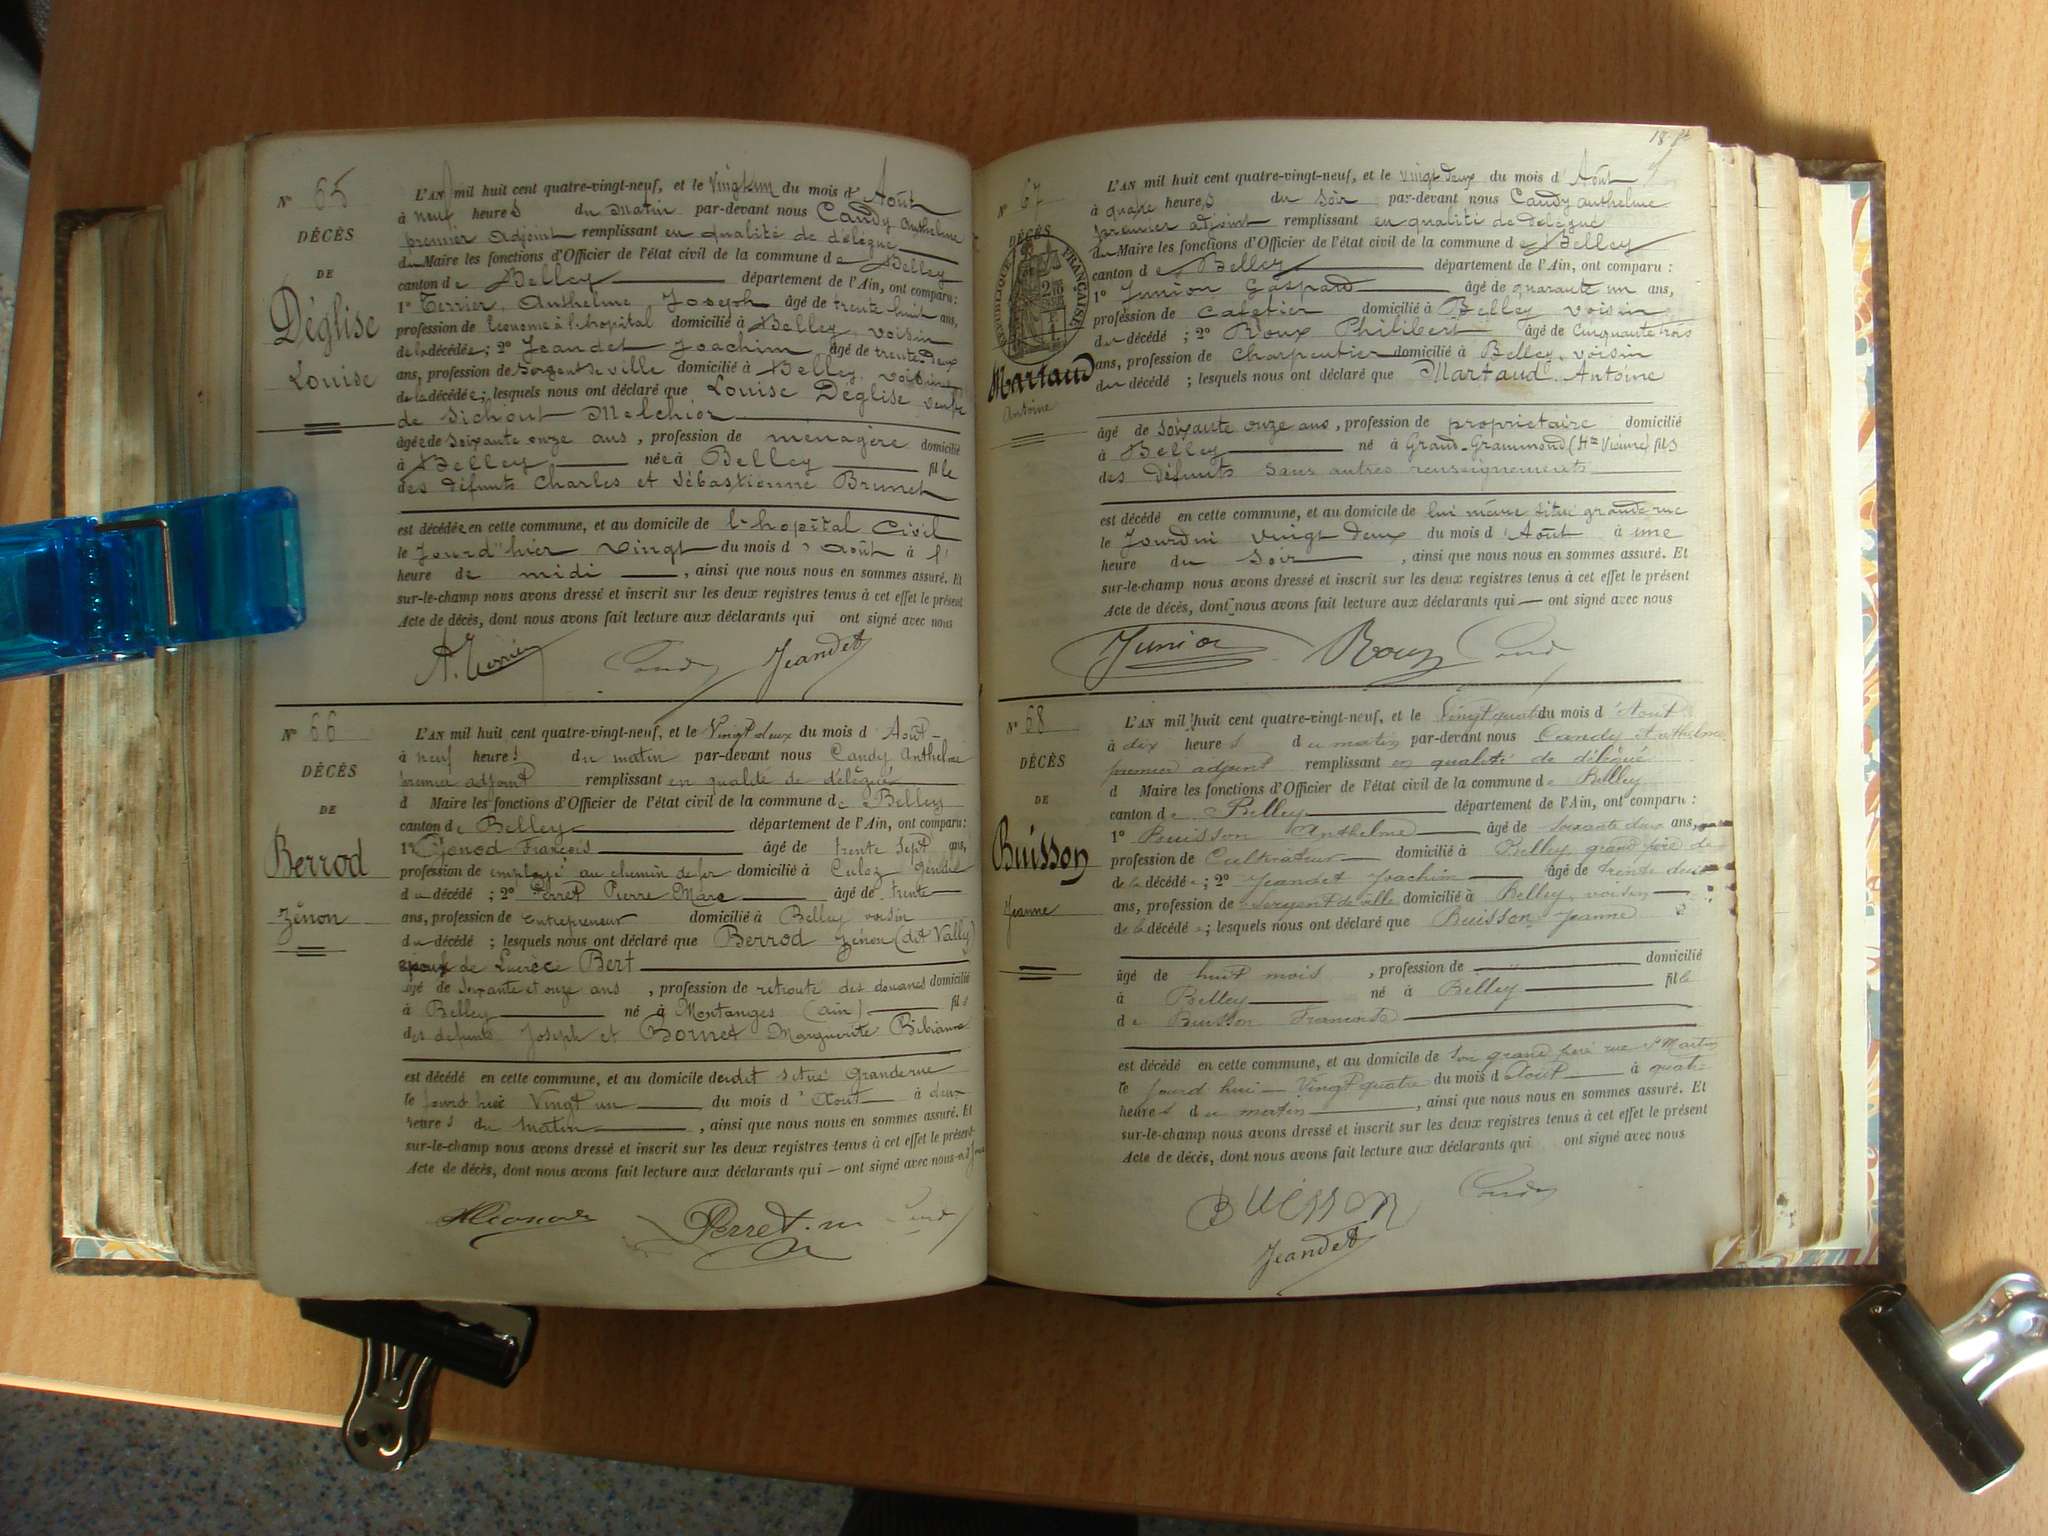 N° 65
DÉCÈS
DE
Déglise
Louise
L'AN mil huit cent quatre-vingt-neuf, et le Vingt un du mois d'Août
à neuf heures du matin par-devant nous Candy Anthelme
premier Adjoint remplissant en qualité de délégué
du Maire les fonctions d'Officier de l'état civil de la commune de Belley
canton de Belley département de l'Ain, ont comparu :
1° Terrier, Anthelme Joseph âgé de trente huit ans,
profession de Econome à l'hopital domicilié à Belley, voisin
de la décédée ; 2° Jeandet Joachim, âgé de trente deux
ans, profession de Sergent de ville domicilié à Belley, voisin
de la décédée ; lesquels nous ont déclaré que Louise Déglise veuve
de Sichout Melchior
âgée de soixante onze ans, profession de ménagère domicilié
à Belley née à Belley fille
des défunts Charles et Sébastienne Brunet
est décédée en cette commune, et au domicile de l'hopital Civil
le Jourd'hier Vingt du mois d'Août à l'
heure de midi, ainsi que nous nous en sommes assuré. Et
sur-le-champ nous avons dressé et inscrit sur les deux registres tenus à cet effet le présent
Acte de décès, dont nous avons fait lecture aux déclarants qui ont signé avec nous
A. Terrier Candy Jeandet
N° 66
DÉCÈS
DE
Berrod
Zénon
L'AN mil huit cent quatre-vingt-neuf, et le Vingt deux du mois d'Août
à neuf heures du matin par-devant nous Candy Anthelme
premier adjoint remplissant en qualité de délégué
d Maire les fonctions d'Officier de l'état civil de la commune de Belley
canton de Belley département de l'Ain, ont comparu :
1° Gonod François âgé de trente sept ans,
profession de employé au chemin de fer domicilié à Culoz gendre
du décédé ; 2° Perret Pierre Marc âgé de trente
ans, profession de entrepreneur domicilié à Belley voisin
du décédé ; lesquels nous ont déclaré que Berrod Zénon (dit Vally)
époux de Lucrèce Bert
âgé de soixante et onze ans, profession de retraité des douanes domicilié
à Belley né à Montanges (ain) fils
des defunts Joseph et Bornet Marguerite Bibianne
est décédé en cette commune, et au domicile dudit situé Grande rue
le jourd'hui Vingt un du mois d'Août à deux
heures du matin, ainsi que nous nous en sommes assuré. Et
sur-le-champ nous avons dressé et inscrit sur les deux registres tenus à cet effet le présent
Acte de décès, dont nous avons fait lecture aux déclarants qui ont signé avec nous
Perret m Candy
N° 67
DÉCÈS
RÉPUBLIQUE FRANÇAISE
Martaud
Antoine
L'AN mil huit cent quatre-vingt-neuf, et le vingt deux du mois d'Août
à quatre heures du soir par-devant nous Candy anthelme
premier adjoint remplissant en qualité de délégué
du Maire les fonctions d'Officier de l'état civil de la commune de Belley
canton de Belley département de l'Ain, ont comparu :
1° Junior Gaspard âgé de quarante un ans,
profession de cafetier domicilié à Belley voisin
du décédé ; 2° Roux Philibert âgé de cinquante trois
ans, profession de charpentier domicilié à Belley, voisin
du décédé ; lesquels nous ont déclaré que Martaud Antoine
âgé de soixante onze ans, profession de propriétaire domicilié
à Belley né à Grand-Grammond (Hte Vienne) fils
des défunts sans autres renseignements
est décédé en cette commune, et au domicile de lui même situé grande rue
le Jourdui vingt deux du mois d'Août à une
heure du soir, ainsi que nous nous en sommes assuré. Et
sur-le-champ nous avons dressé et inscrit sur les deux registres tenus à cet effet le présent
Acte de décès, dont nous avons fait lecture aux déclarants qui ont signé avec nous
Junior Roux Candy
N° 68
DÉCÈS
DE
Buisson
Jeanne
L'AN mil huit cent quatre-vingt-neuf, et le Vingt quatre du mois d'Août
à dix heures du matin par-devant nous Candy Anthelme
premier adjoint remplissant en qualité de délégué
d Maire les fonctions d'Officier de l'état civil de la commune de Belley
canton de Belley département de l'Ain, ont comparu :
1° Buisson Anthelme âgé de soixante deux ans,
profession de Cultivateur domicilié à Belley, grand père de
de la décédée ; 2° Jeandet Joachim âgé de trente deux
ans, profession de sergent de ville domicilié à Belley, voisin
de la décédée ; lesquels nous ont déclaré que Buisson Jeanne
âgé de huit mois, profession de domicilié
à Belley né à Belley fille
de Buisson
est décédé en cette commune, et au domicile de son grand père rue St Martin
le jourd'hui Vingt quatre du mois d'Août à quatre
heures du matin, ainsi que nous nous en sommes assuré. Et
sur-le-champ nous avons dressé et inscrit sur les deux registres tenus à cet effet le présent
Acte de décès, dont nous avons fait lecture aux déclarants qui ont signé avec nous
BUISSON Candy
Jeandet